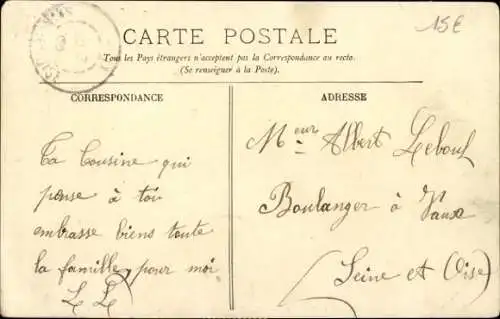 15€
CARTE POSTALE
Tous les Pays étrangers n'acceptent pas la Correspondance au recto.
(Se renseigner à la Poste).
CORRESPONDANCE
Ta Cousine qui
pense à toi
embrasse biens toute
la famille pour moi
L L
ADRESSE
Meur Albert Lebouf
Boulanger à Vaux
(Seine et Oise)